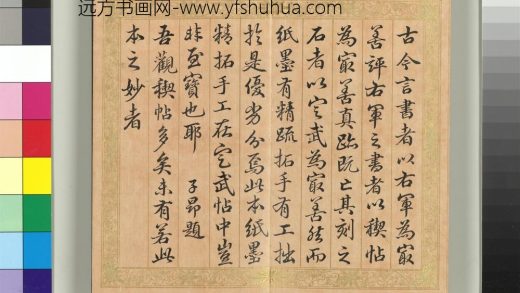 远方书画网-www.yfshuhua.com
古今言書者以右軍為冣
善評右軍之書者以稧帖
為冣善真跡既亡其刻之
石者以定武為冣善然而
紙墨有精疏拓手有工拙
於是優劣分焉此本紙墨
精拓手工在定武帖中豈
非至寶也耶 子昂題
吾觀稧帖多矣未有若此
本之妙者